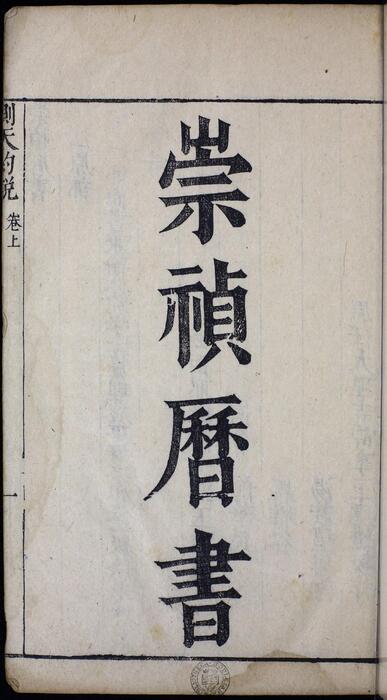 崇禎曆書
測天約說 卷上
一